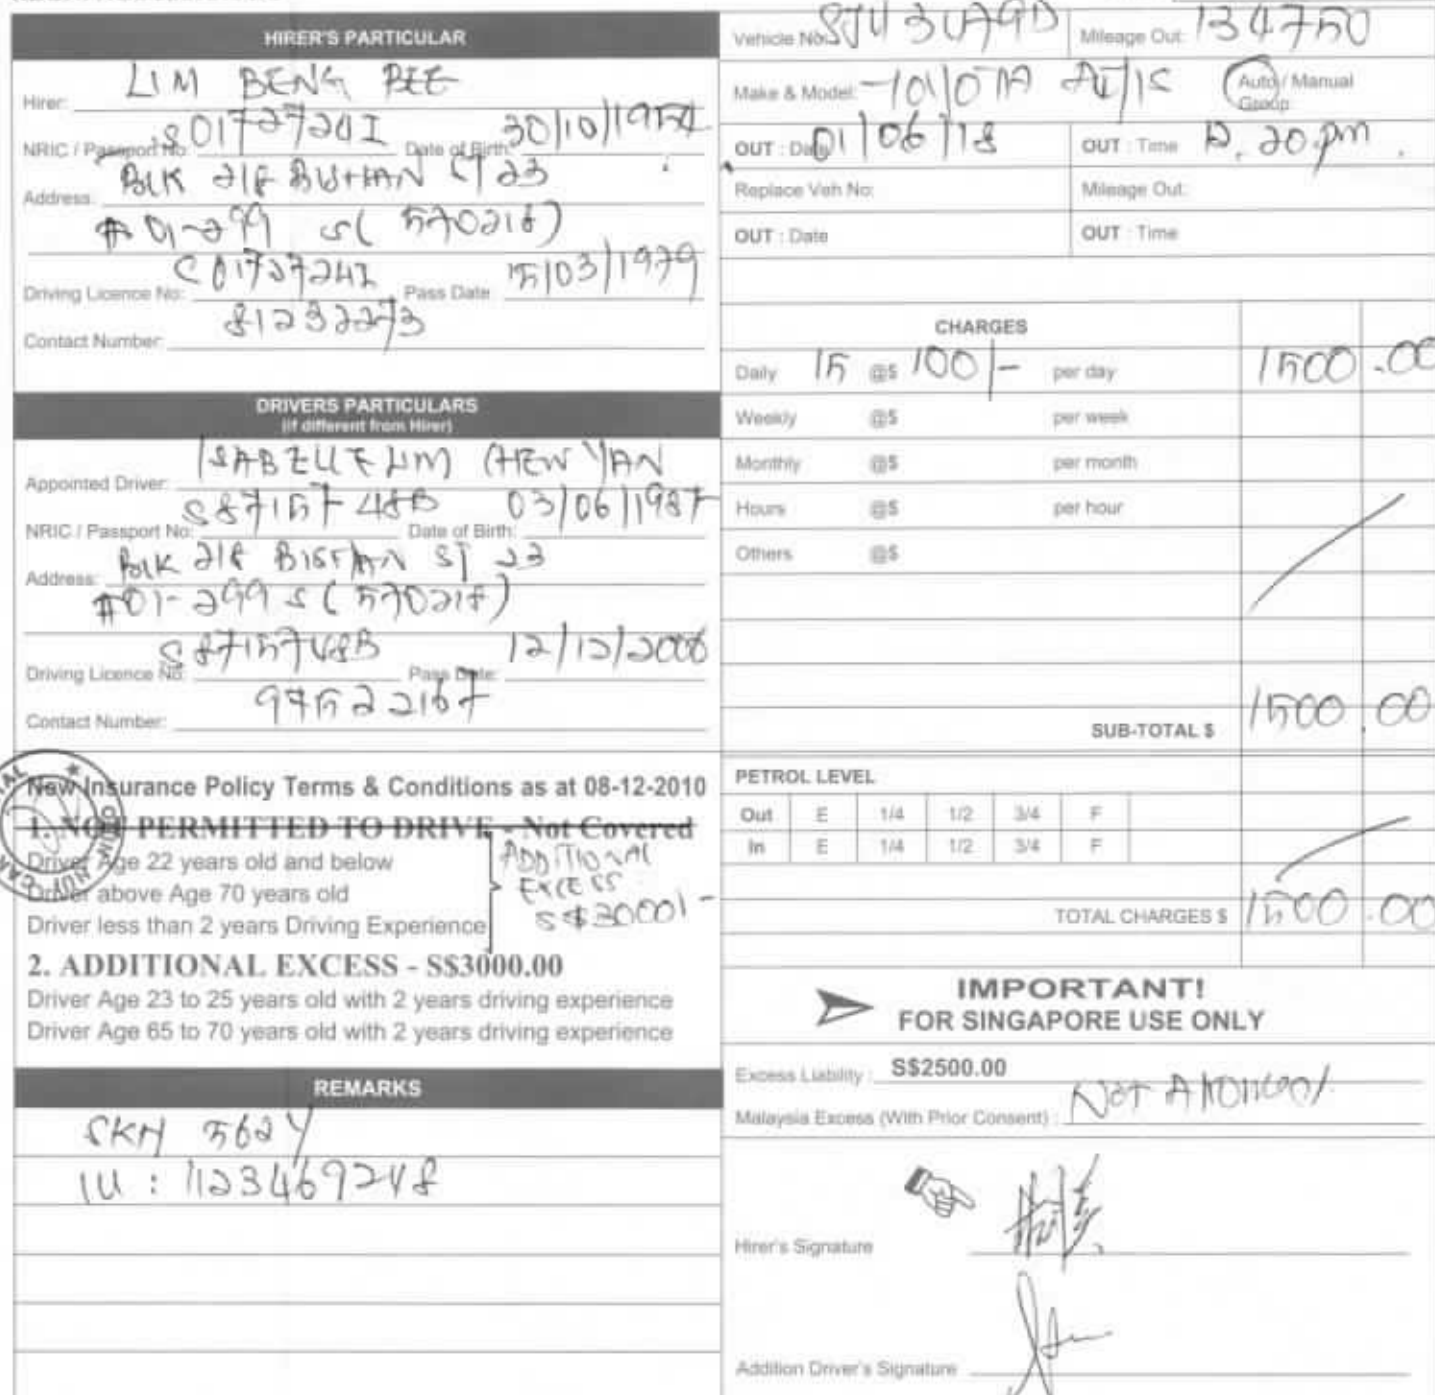 HIRER'S PARTICULAR
Hirer: LIM BENG BEE
NRIC / Passport No: S0172724I Date of Birth: 30/10/1954
Address: BLK 218 BISHAN ST 23
#01-299 S(570218)
Driving Licence No: S0172724I Pass Date: 15/03/1979
Contact Number: 81232273
DRIVERS PARTICULARS
(if different from Hirer)
Appointed Driver: ISABELLE LIM CHEW YAN
NRIC / Passport No: S8715748B Date of Birth: 03/06/1987
Address: BLK 218 BISHAN ST 23
#01-299 S(570218)
Driving Licence No: S8715748B Pass Date: 12/12/2006
Contact Number: 97522167
New Insurance Policy Terms & Conditions as at 08-12-2010
1. NOT PERMITTED TO DRIVE - Not Covered
Driver Age 22 years old and below
Driver above Age 70 years old
Driver less than 2 years Driving Experience
ADDITIONAL
EXCESS
S$3000/-
2. ADDITIONAL EXCESS - S$3000.00
Driver Age 23 to 25 years old with 2 years driving experience
Driver Age 65 to 70 years old with 2 years driving experience
REMARKS
SKH 562Y
IU : 1123469248
Vehicle No: Mileage Out: 134750
Make & Model: TOYOTA ALTIS Auto / Manual
Group
OUT : Date 01/06/18 OUT : Time 12.20pm
Replace Veh No: Mileage Out:
OUT : Date OUT : Time
CHARGES
Daily 15 @$ 100/- per day 1500.00
Weekly @$ per week
Monthly @$ per month
Hours @$ per hour
Others @$
SUB-TOTAL $ 1500.00
PETROL LEVEL
Out E 1/4 1/2 3/4 F
In E 1/4 1/2 3/4 F
TOTAL CHARGES $ 1500.00
IMPORTANT!
FOR SINGAPORE USE ONLY
Excess Liability : S$2500.00
Malaysia Excess (With Prior Consent) : NOT Allowed
Hirer's Signature
Addition Driver's Signature